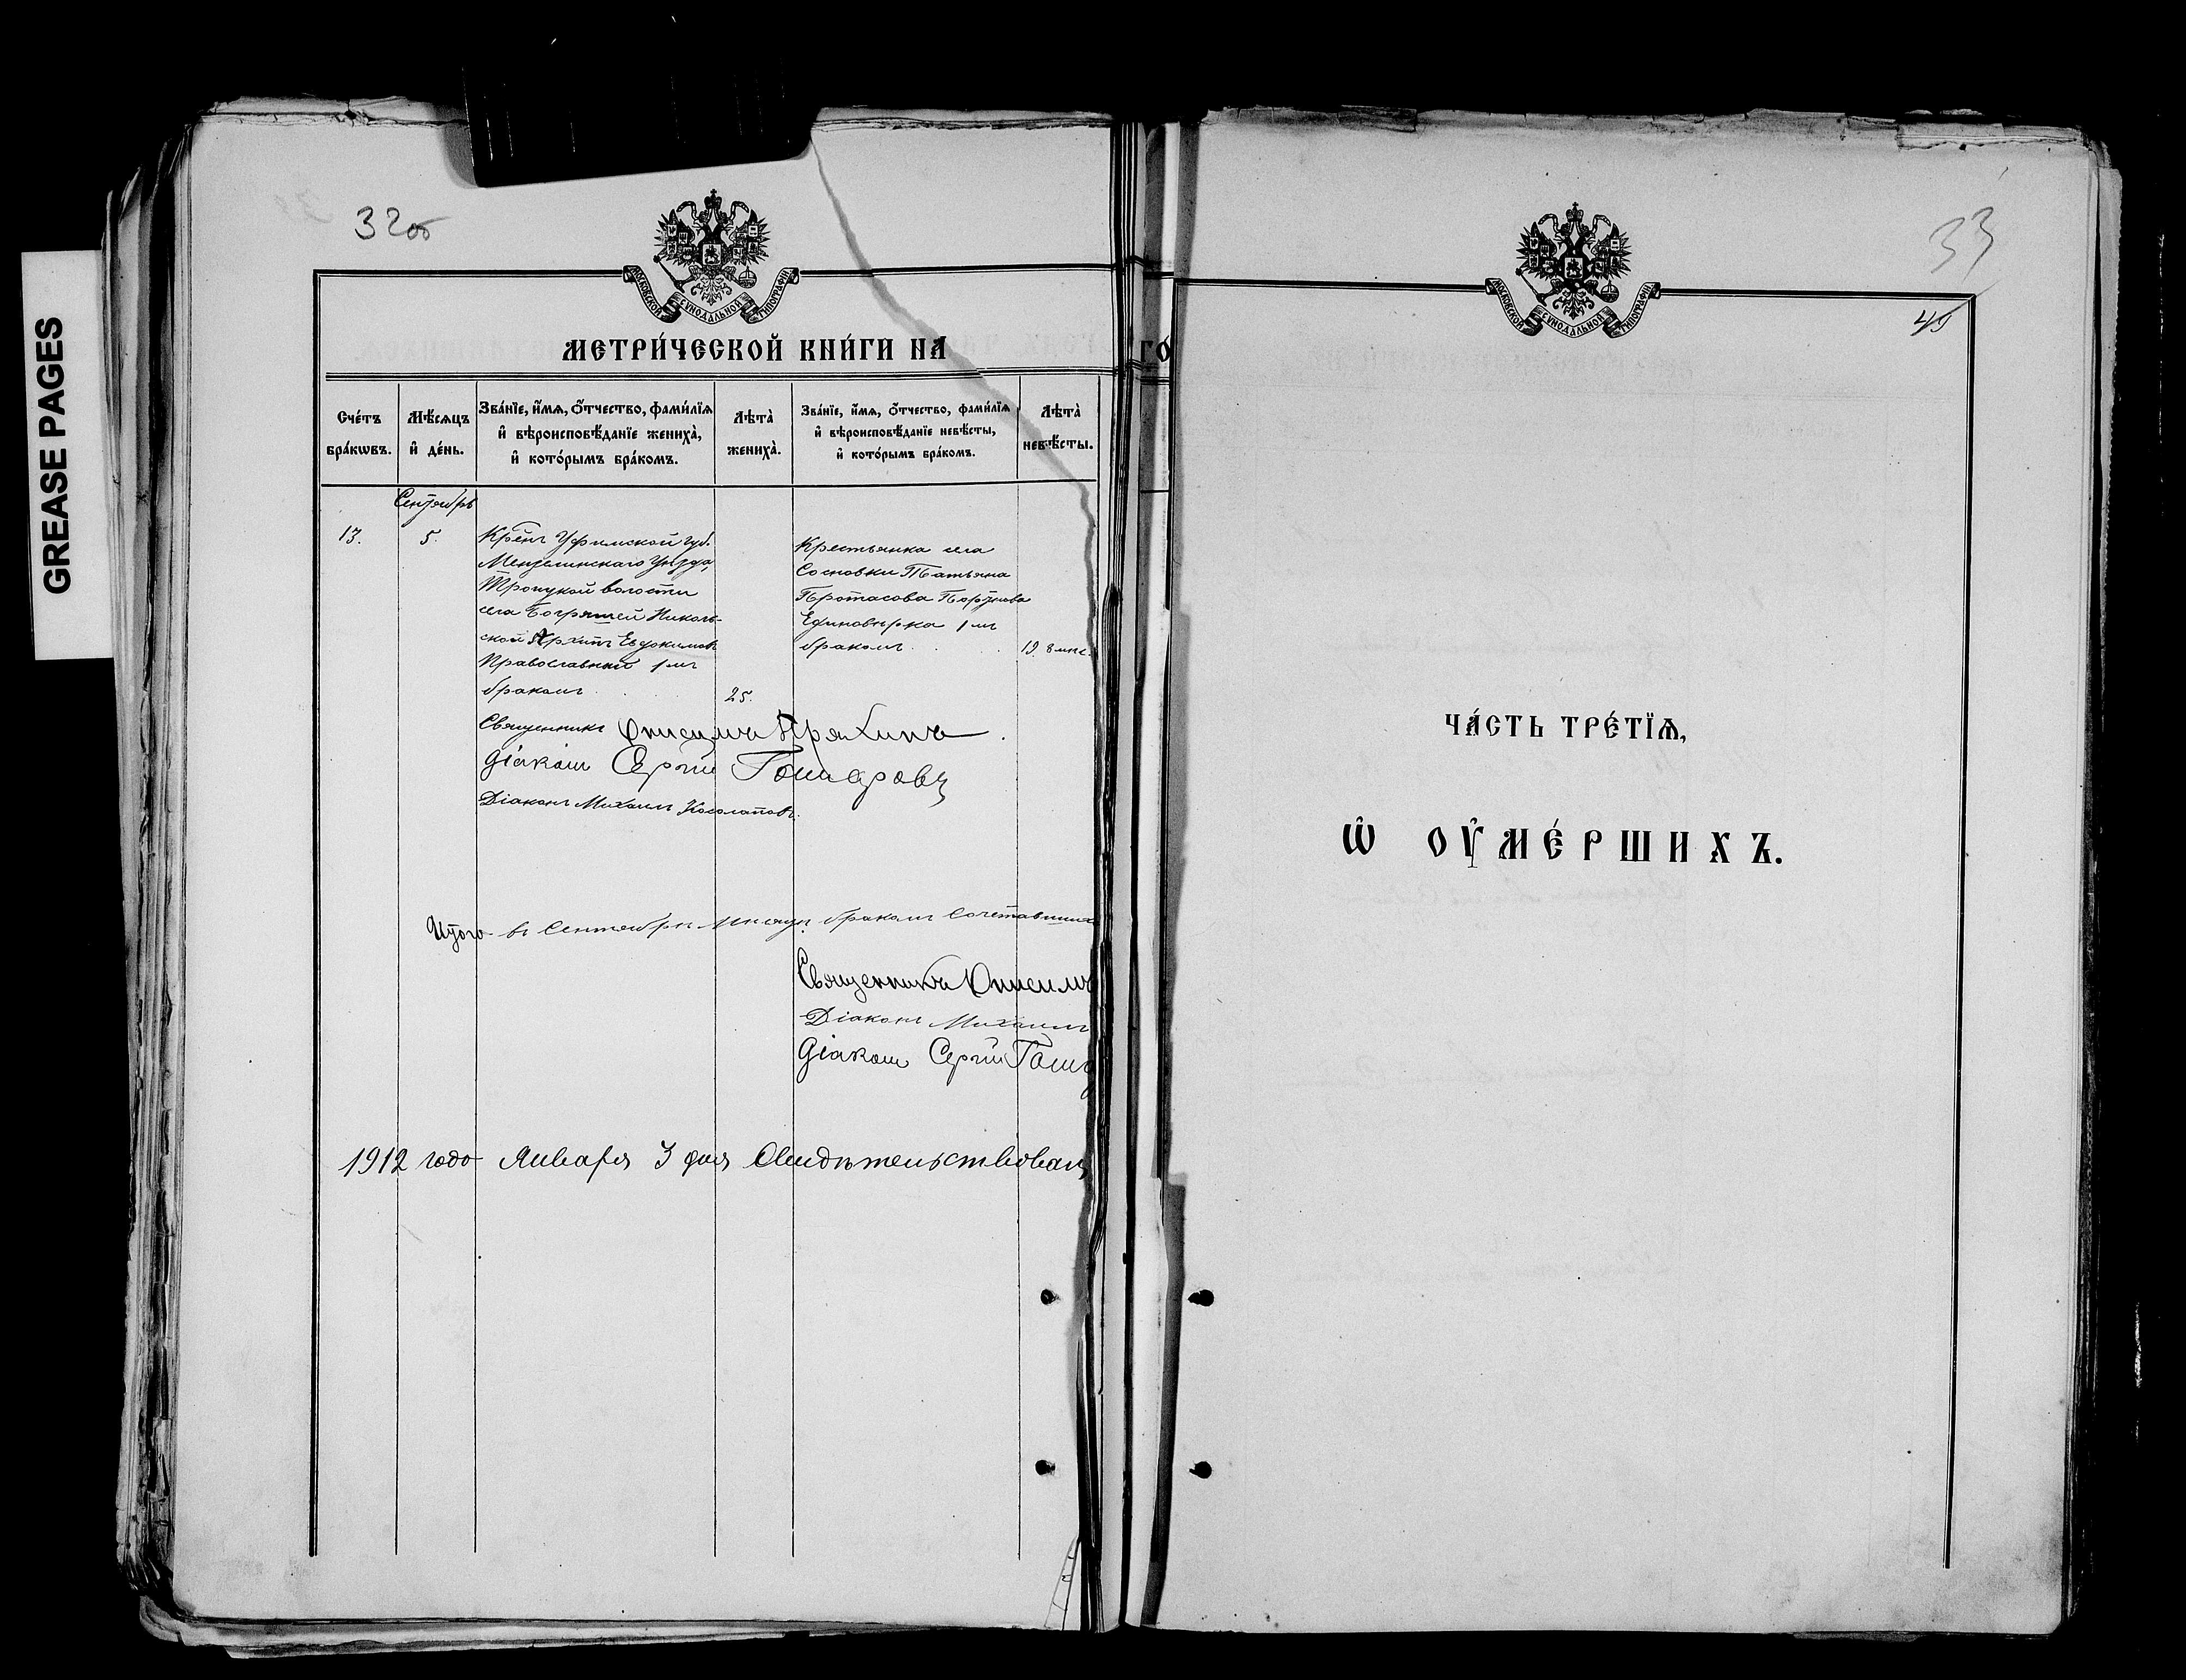 GREASE PAGES
32об
МОСКОВСКОЙ СѴНОДАЛЬНОЙ ТИПОГРАФІИ
МЕТРИ́ЧЕСКОЙ КНИ́ГИ НА
Сче́тъ бра́кωвъ.
Мѣ́сѧцъ и҆ де́нь.
Зва́нїе, и҆́мѧ, ѻ҆́тчество, фами́лїѧ и҆ вѣроисповѣ́данїе жениха̀, и҆ кото́рымъ бра́комъ.
Лѣта̀ жениха̀.
Зва́нїе, и҆́мѧ, ѻ҆́тчество, фами́лїѧ и҆ вѣроисповѣ́данїе невѣ́сты, и҆ кото́рымъ бра́комъ.
Лѣта̀ невѣ́сты.
Сентябрь
13.
5.
Крен Уфимской губ.
Мензелинскаго Уѣзда,
Троицкой волости
села Богряшей Николь-
ской Архипъ Евдокимовъ
Православный 1мъ
бракомъ
25.
Крестьянка села
Сосновки Татьяна
Протасова
Единовѣрка 1мъ
бракомъ
19. 8 мѣс.
Священникъ Онисимъ Пряхинъ.
Діаконъ Сергій
Діаконъ Михаилъ Косолаповъ.
Итого въ Сентябрѣ мѣсяцѣ бракомъ сочетавшихс
Священникъ Онисимъ
Діаконъ Михаилъ
Діаконъ Сергій
1912 года Января 3 дня Свидѣтельствовалъ
го
33
МОСКОВСКОЙ СѴНОДАЛЬНОЙ ТИПОГРАФІИ
ЧА́СТЬ ТРЕ́ТЇѦ,
Ѡ҆ ОУ҆МЕ́РШИХЪ.